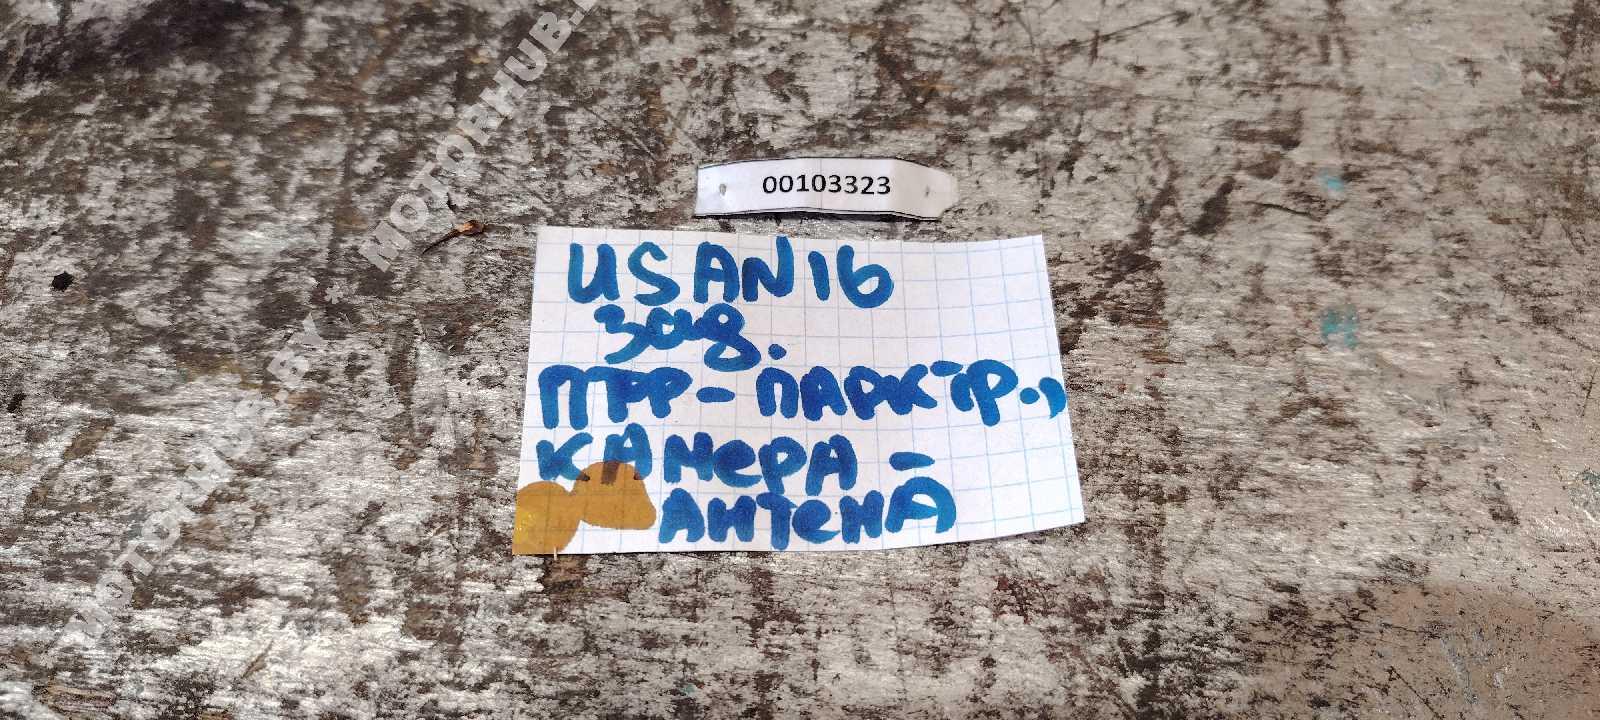 00103323
USAN16
зад.
ПТФ-ПАРКТР.,
КАМЕРА -
АНТЕНА
MOTORHUB.BY * MOTORHUB.